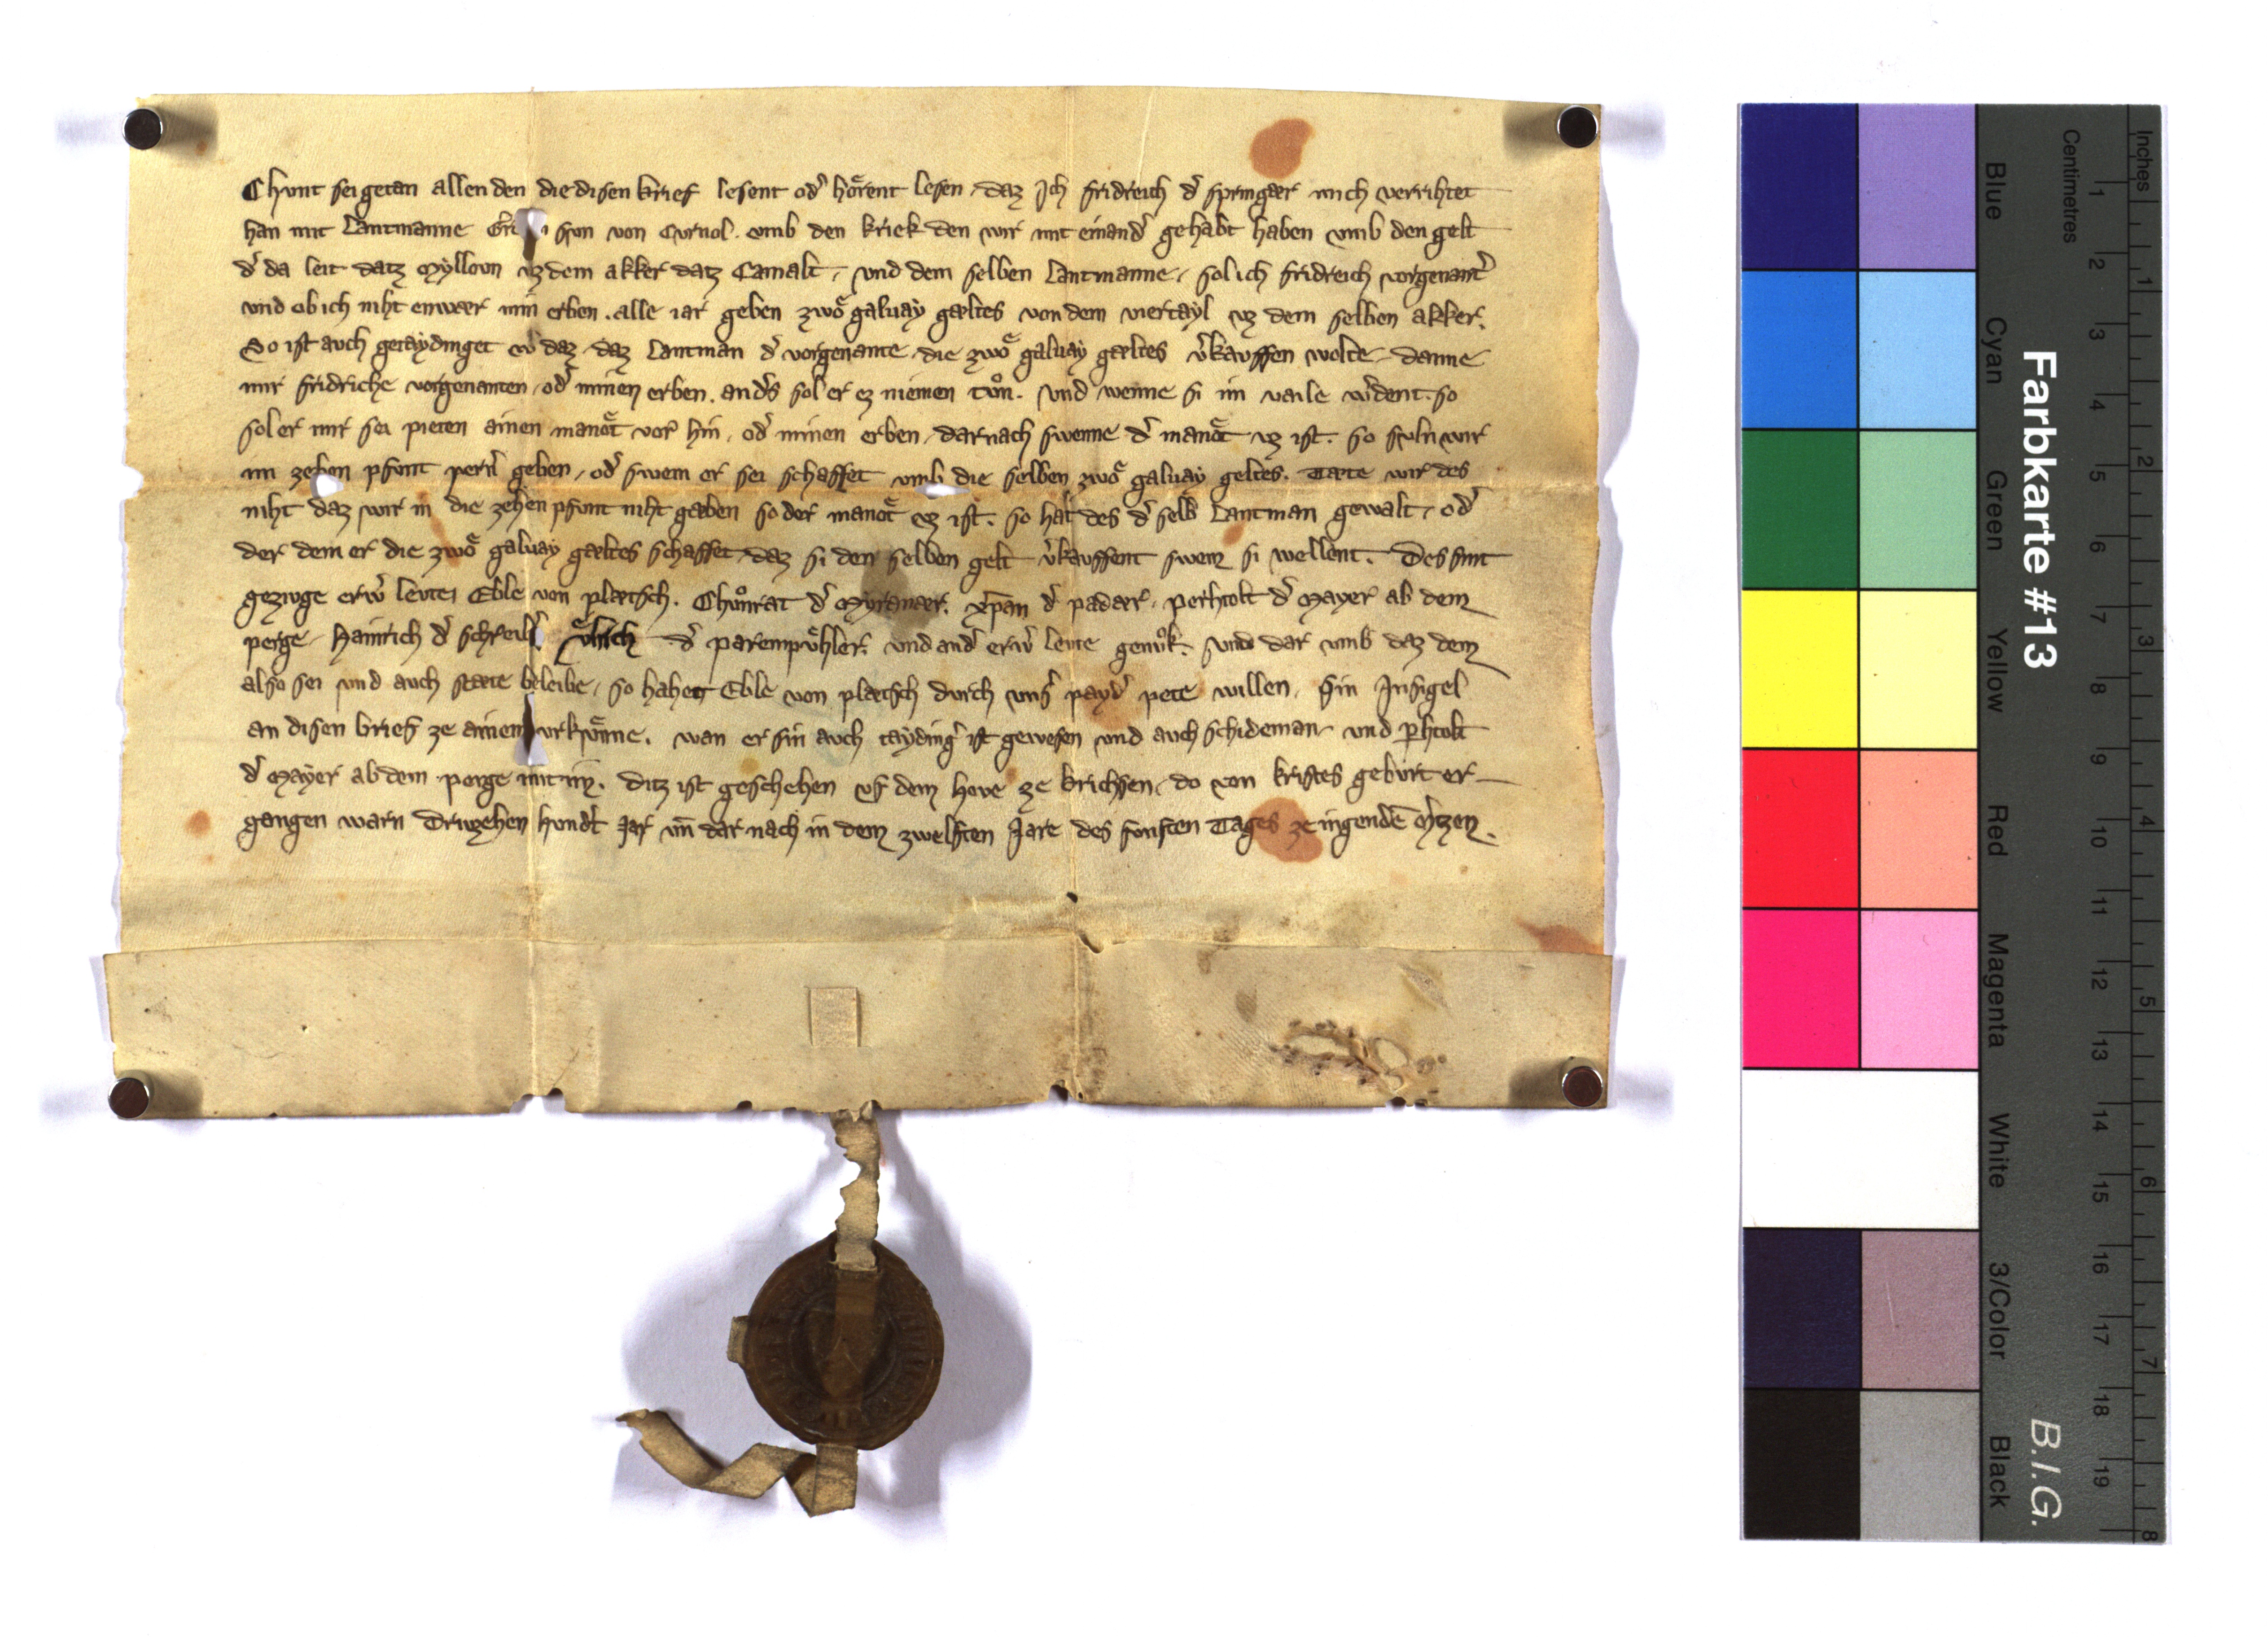 Chvnt sei getan allen den die disen krief lesent od' hoͤrent lesen. daz Ich fridreich d' springær mich verrihtet
han mit Lantmanne svn von Cvrnol. vmb den kriek den wir mit einand' gehabt haben vmb den gelt
d' da leit datz Mylloun vz dem akker datz Camalt. vnd dem selben Lantmanne. sol ich fridreich vorgenant'
vnd ob ich niht enwær min erben. alle iar geben zwoͤ galuay gæltes von dem viertayl vz dem selben akker.
So ist avch getaydinget daz. daz Lantman d' vorgenante. die zwoͤ galuay gæltes v'kavffen wolte. danne
mir fridriche vorgenanten. od' minen erben. and's sol er ez niemen tvͦn. vnd wenne si im vaile w'dent. so
sol er mir sei pieten ainen manoͤt vor hin. od' minen erben. dar nach swenne d' manoͤt vz ist. so svln wir
im zehen pfvnt pern' geben. od' swem er sei schaffet vmb die selben zwoͤ galuay geltes. Tæte wir des
niht daz wir in die zehen pfvnt niht gæben so der manoͤt vz ist. so hat des d' selb Lantman gewalt. od'
der dem er die zwoͤ galuay gæltes schaffet. daz si den selben gelt v'kavffent swem si wellent. Des sint
gezivge erw' levte. Eble von plætsch. Chvͦnrat d' Myranær. xp̄an d' padær. perhtolt d' Mayer ab dem
perge. Hainrich d' schreib'. vͤlrich d' parempvͤhler. vnd and' erw' levte genvͦk. vnd dar vmb daz dem
also sei vnd avch stæte beleibe. so hahet Eble von plætsch dvrch vns' payd' pete willen. sin Insigel
an disen brief ze ainem vrkvͤnne. wan er sin avch tayding' ist gewesen vnd avch schideman. vnd p̱htolt
d' Mayer ab dem perge mit im. ditz ist geschehen vf dem hove ze brichsen. do von kristes gebvrt er
gangen warn Drivzehen hvnd't Jar vn̄ dar nach in dem zwelften Jare des fvnften Tages ze ingendē M'tzen.
Farbkarte #13
B.I.G.
Inches
Centimetres
1 2 3 4 5 6 7 8 9 10 11 12 13 14 15 16 17 18 19
1 2 3 4 5 6 7 8
Blue
Cyan
Green
Yellow
Red
Magenta
White
3/Color
Black